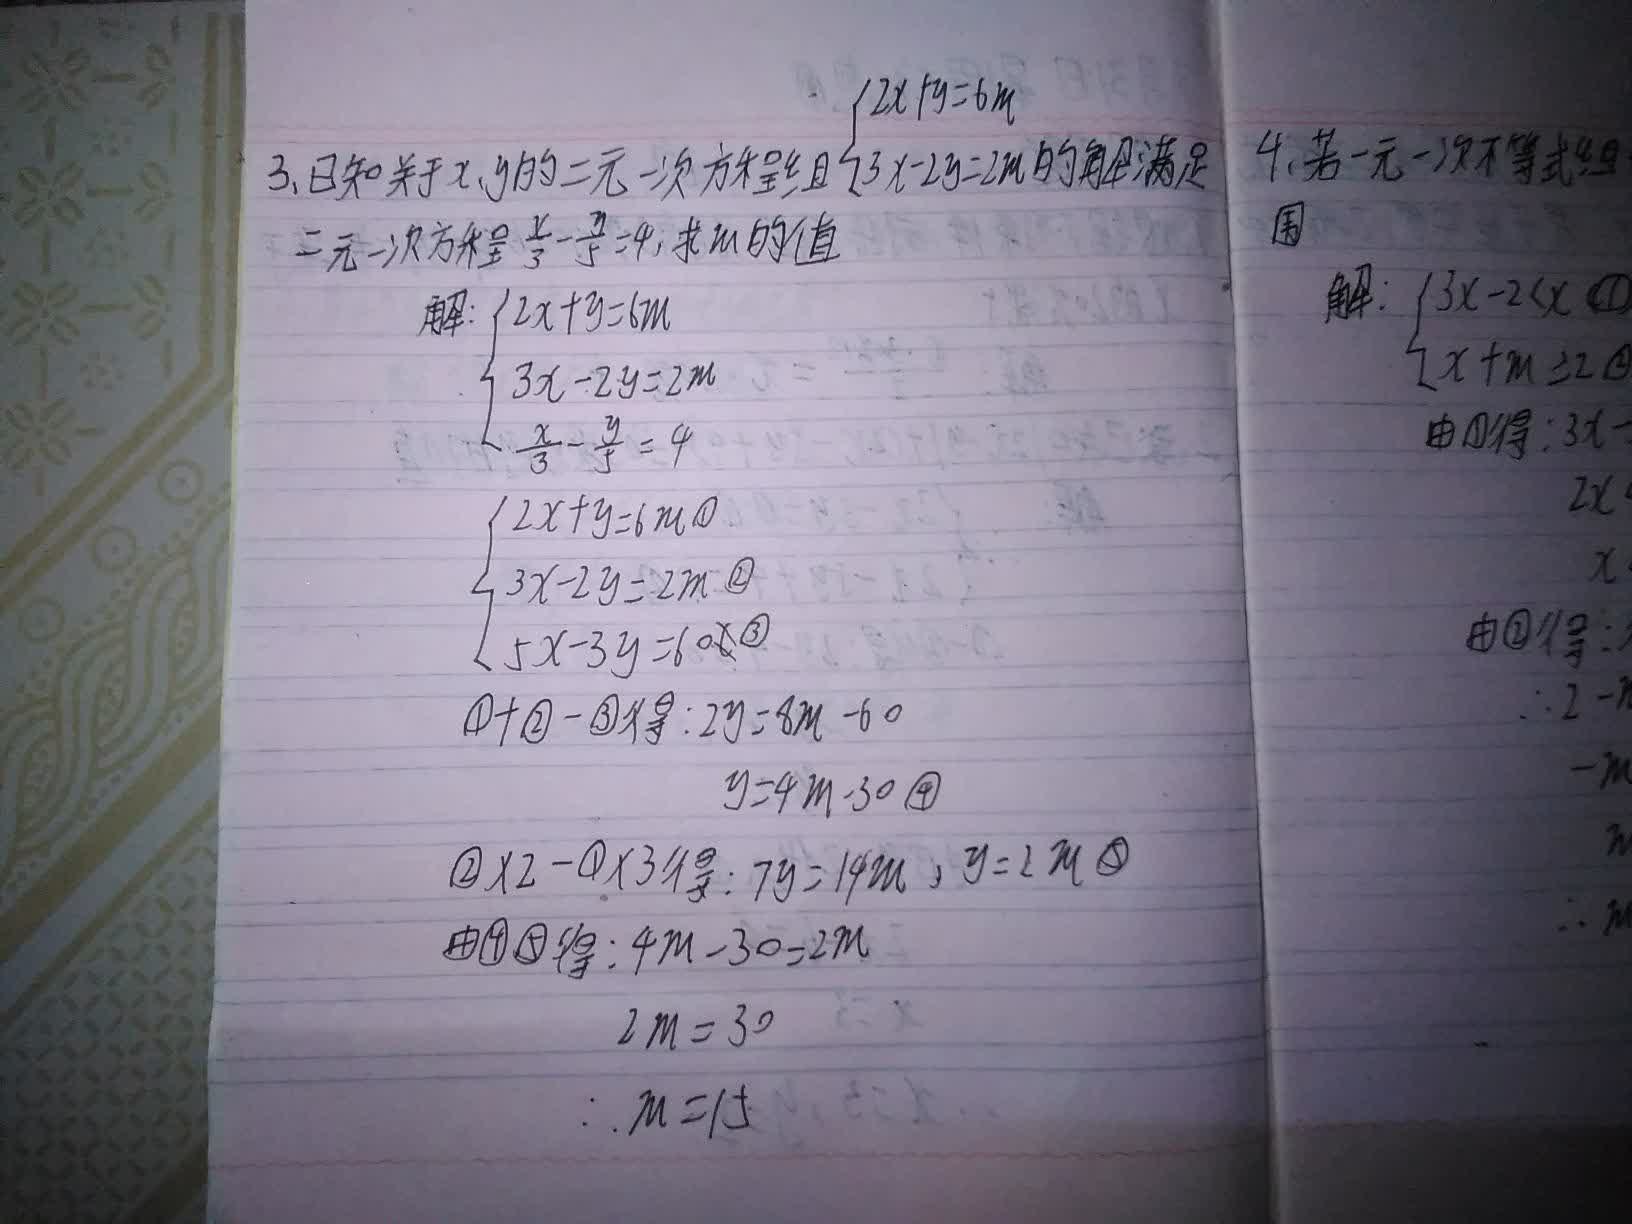 3、已知关于x、y的二元一次方程组{2x+y=6m
3x-2y=2m的解满足
二元一次方程 x/3 - y/5 =4,求m的值
解:{2x+y=6m
3x-2y=2m
x/3 - y/5 = 4
{2x+y=6m①
3x-2y=2m②
5x-3y=60③
①+②-③得:2y=8m-60
y=4m-30④
②×2-①×3得:7y=14m,y=2m⑤
由④⑤得:4m-30=2m
2m=30
∴m=15
4、若一元一次不等式组
围
解:{3x-2<x①
x+m≥2②
由①得:3x-
2x
x
由②得:
∴2-m
-m
m
∴m